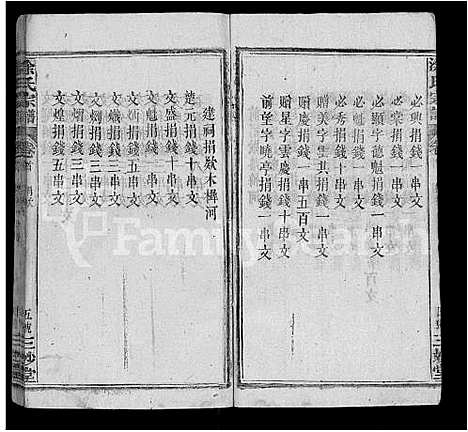 必興捐錢一串文
必榮捐錢一串文
必顯字德魁捐錢一串文
必魁捐錢一串文
必秀捐錢一串文
贈美字雲開捐錢一串文
贈慶捐錢一串五百文
贈星字雲慶捐錢十串文
前堂字曉亭捐錢一串文
建祠捐欵木樨河
楚元捐錢十串文
文盛捐錢十串文
文炳捐錢三串文
文炳捐錢五串文
文炯捐錢三串文
文燦捐錢三串文
文煌捐錢五串文
涂氏宗譜
卷首
捐欵
五號
三妙堂
涂氏宗譜
卷
三妙堂
FamilySearch